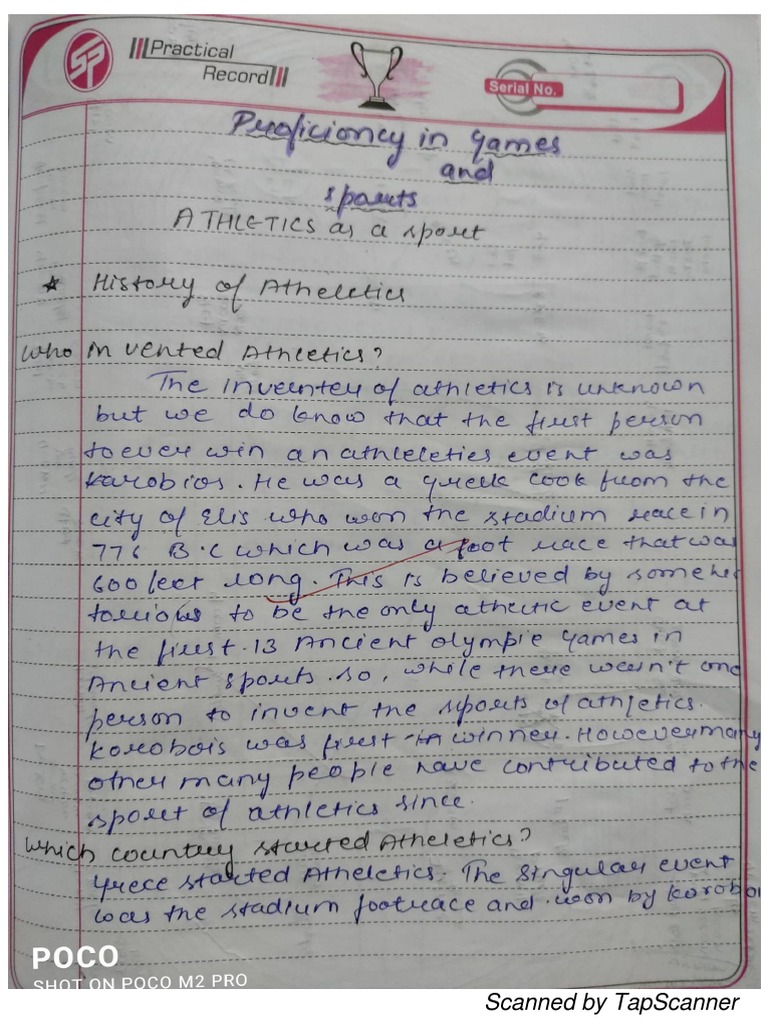 SP
Practical
Record
Serial No.
Proficioncy in games
and
sports
ATHLETICS as a sport
* History of Atheletics
Who invented Athletics?
The inventer of athletics is unknown
but we do know that the first person
to ever win an athleletics event was
Karobios. He was a greek cook from the
city of Elis who won the stadium race in
776 B.C which was a foot race that was
600 feet long. This is believed by some his
torious to be the only athletic event at
the first 13 Ancient Olympic games in
Ancient sports. so, while there wasn't one
person to invent the sports of athletics.
Korobois was first winner. However many
other many people have contributed to the
sport of athletics since.
Which country started Atheletics?
Grece started Atheletics. The singular event
was the stadium footrace and won by Koroboi
POCO
SHOT ON POCO M2 PRO
Scanned by TapScanner